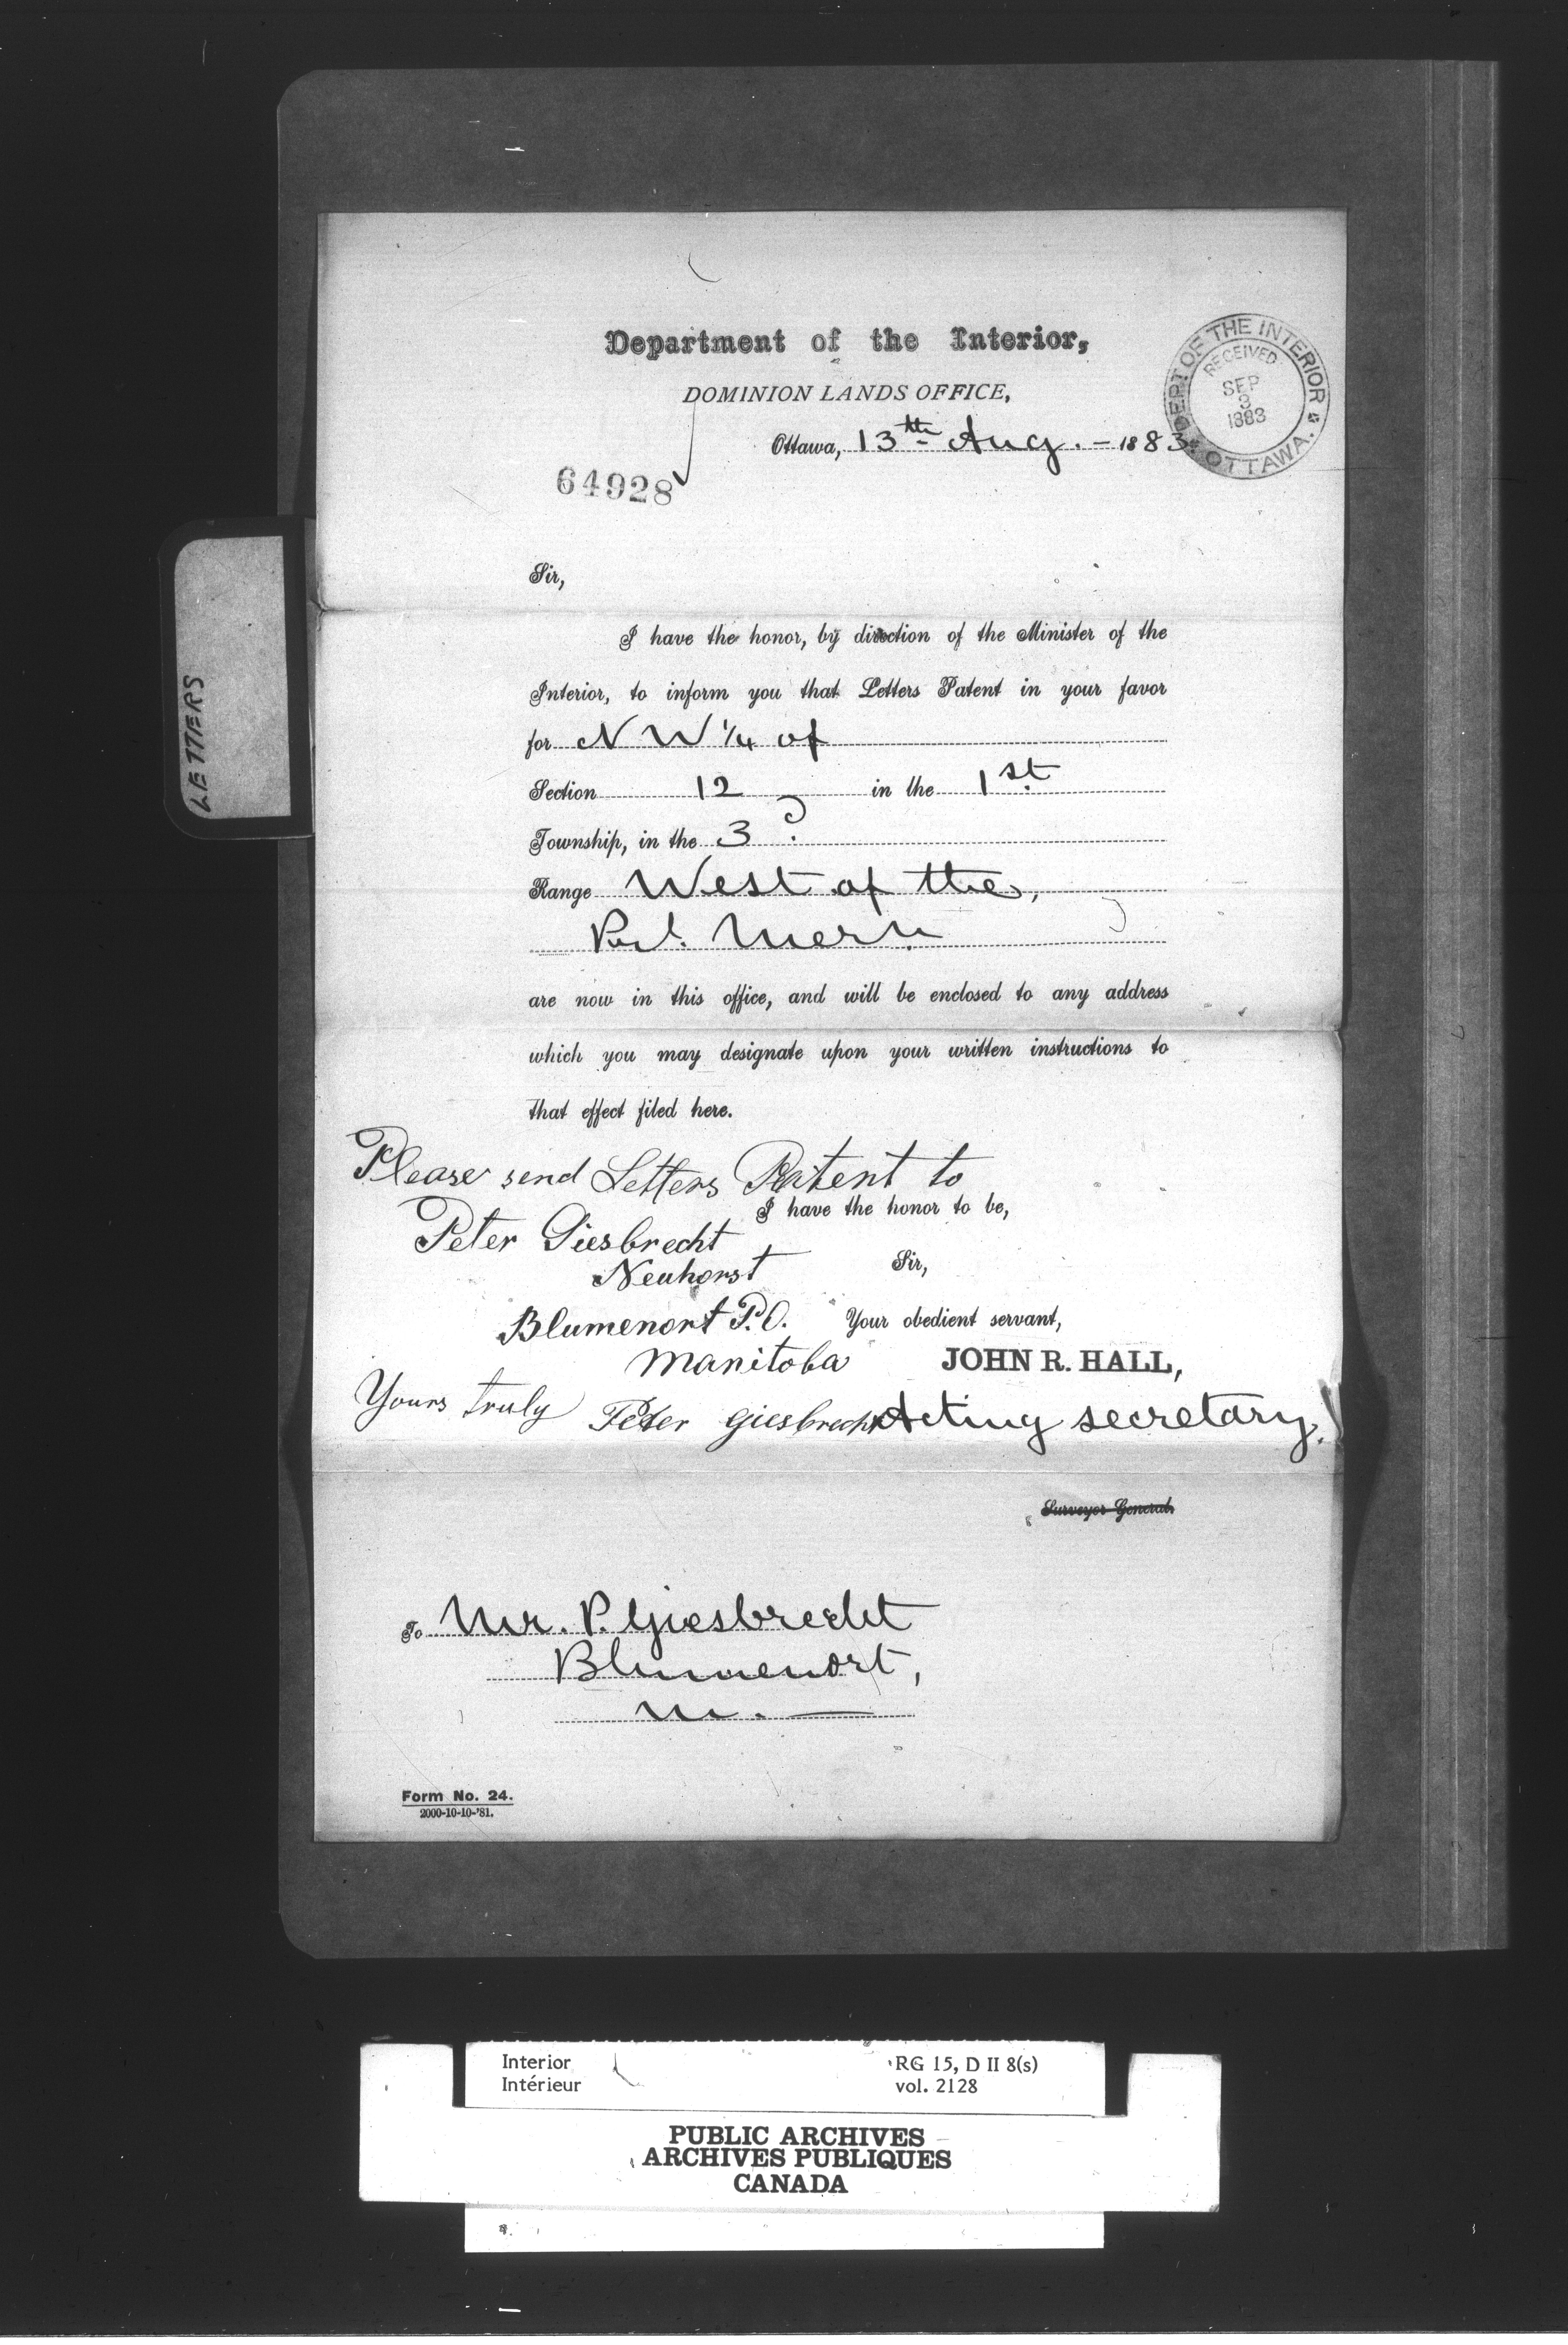 Department of the Interior,
DOMINION LANDS OFFICE,
Ottawa, 13th Aug. - 1883.
DEPT OF THE INTERIOR
RECEIVED
SEP
3
1883
OTTAWA.
64928
LETTERS
Sir,
I have the honor, by direction of the Minister of the
Interior, to inform you that Letters Patent in your favor
for N W 1/4 of
Section 12 in the 1st
Township, in the 3d
Range West of the
Prl. Mern
are now in this office, and will be enclosed to any address
which you may designate upon your written instructions to
that effect filed here.
Please send Letters Patent to
I have the honor to be,
Peter Giesbrecht
Sir,
Neuhorst
Blumenort P.O.
Your obedient servant,
Manitoba
JOHN R. HALL,
Yours truly Peter Giesbrecht
Acting secretary.
Surveyor General.
To Mr. P. Giesbrecht
Blumenort,
M. —
Form No. 24.
2000-10-10-'81.
Interior RG 15, D II 8(s)
Intérieur vol. 2128
PUBLIC ARCHIVES
ARCHIVES PUBLIQUES
CANADA